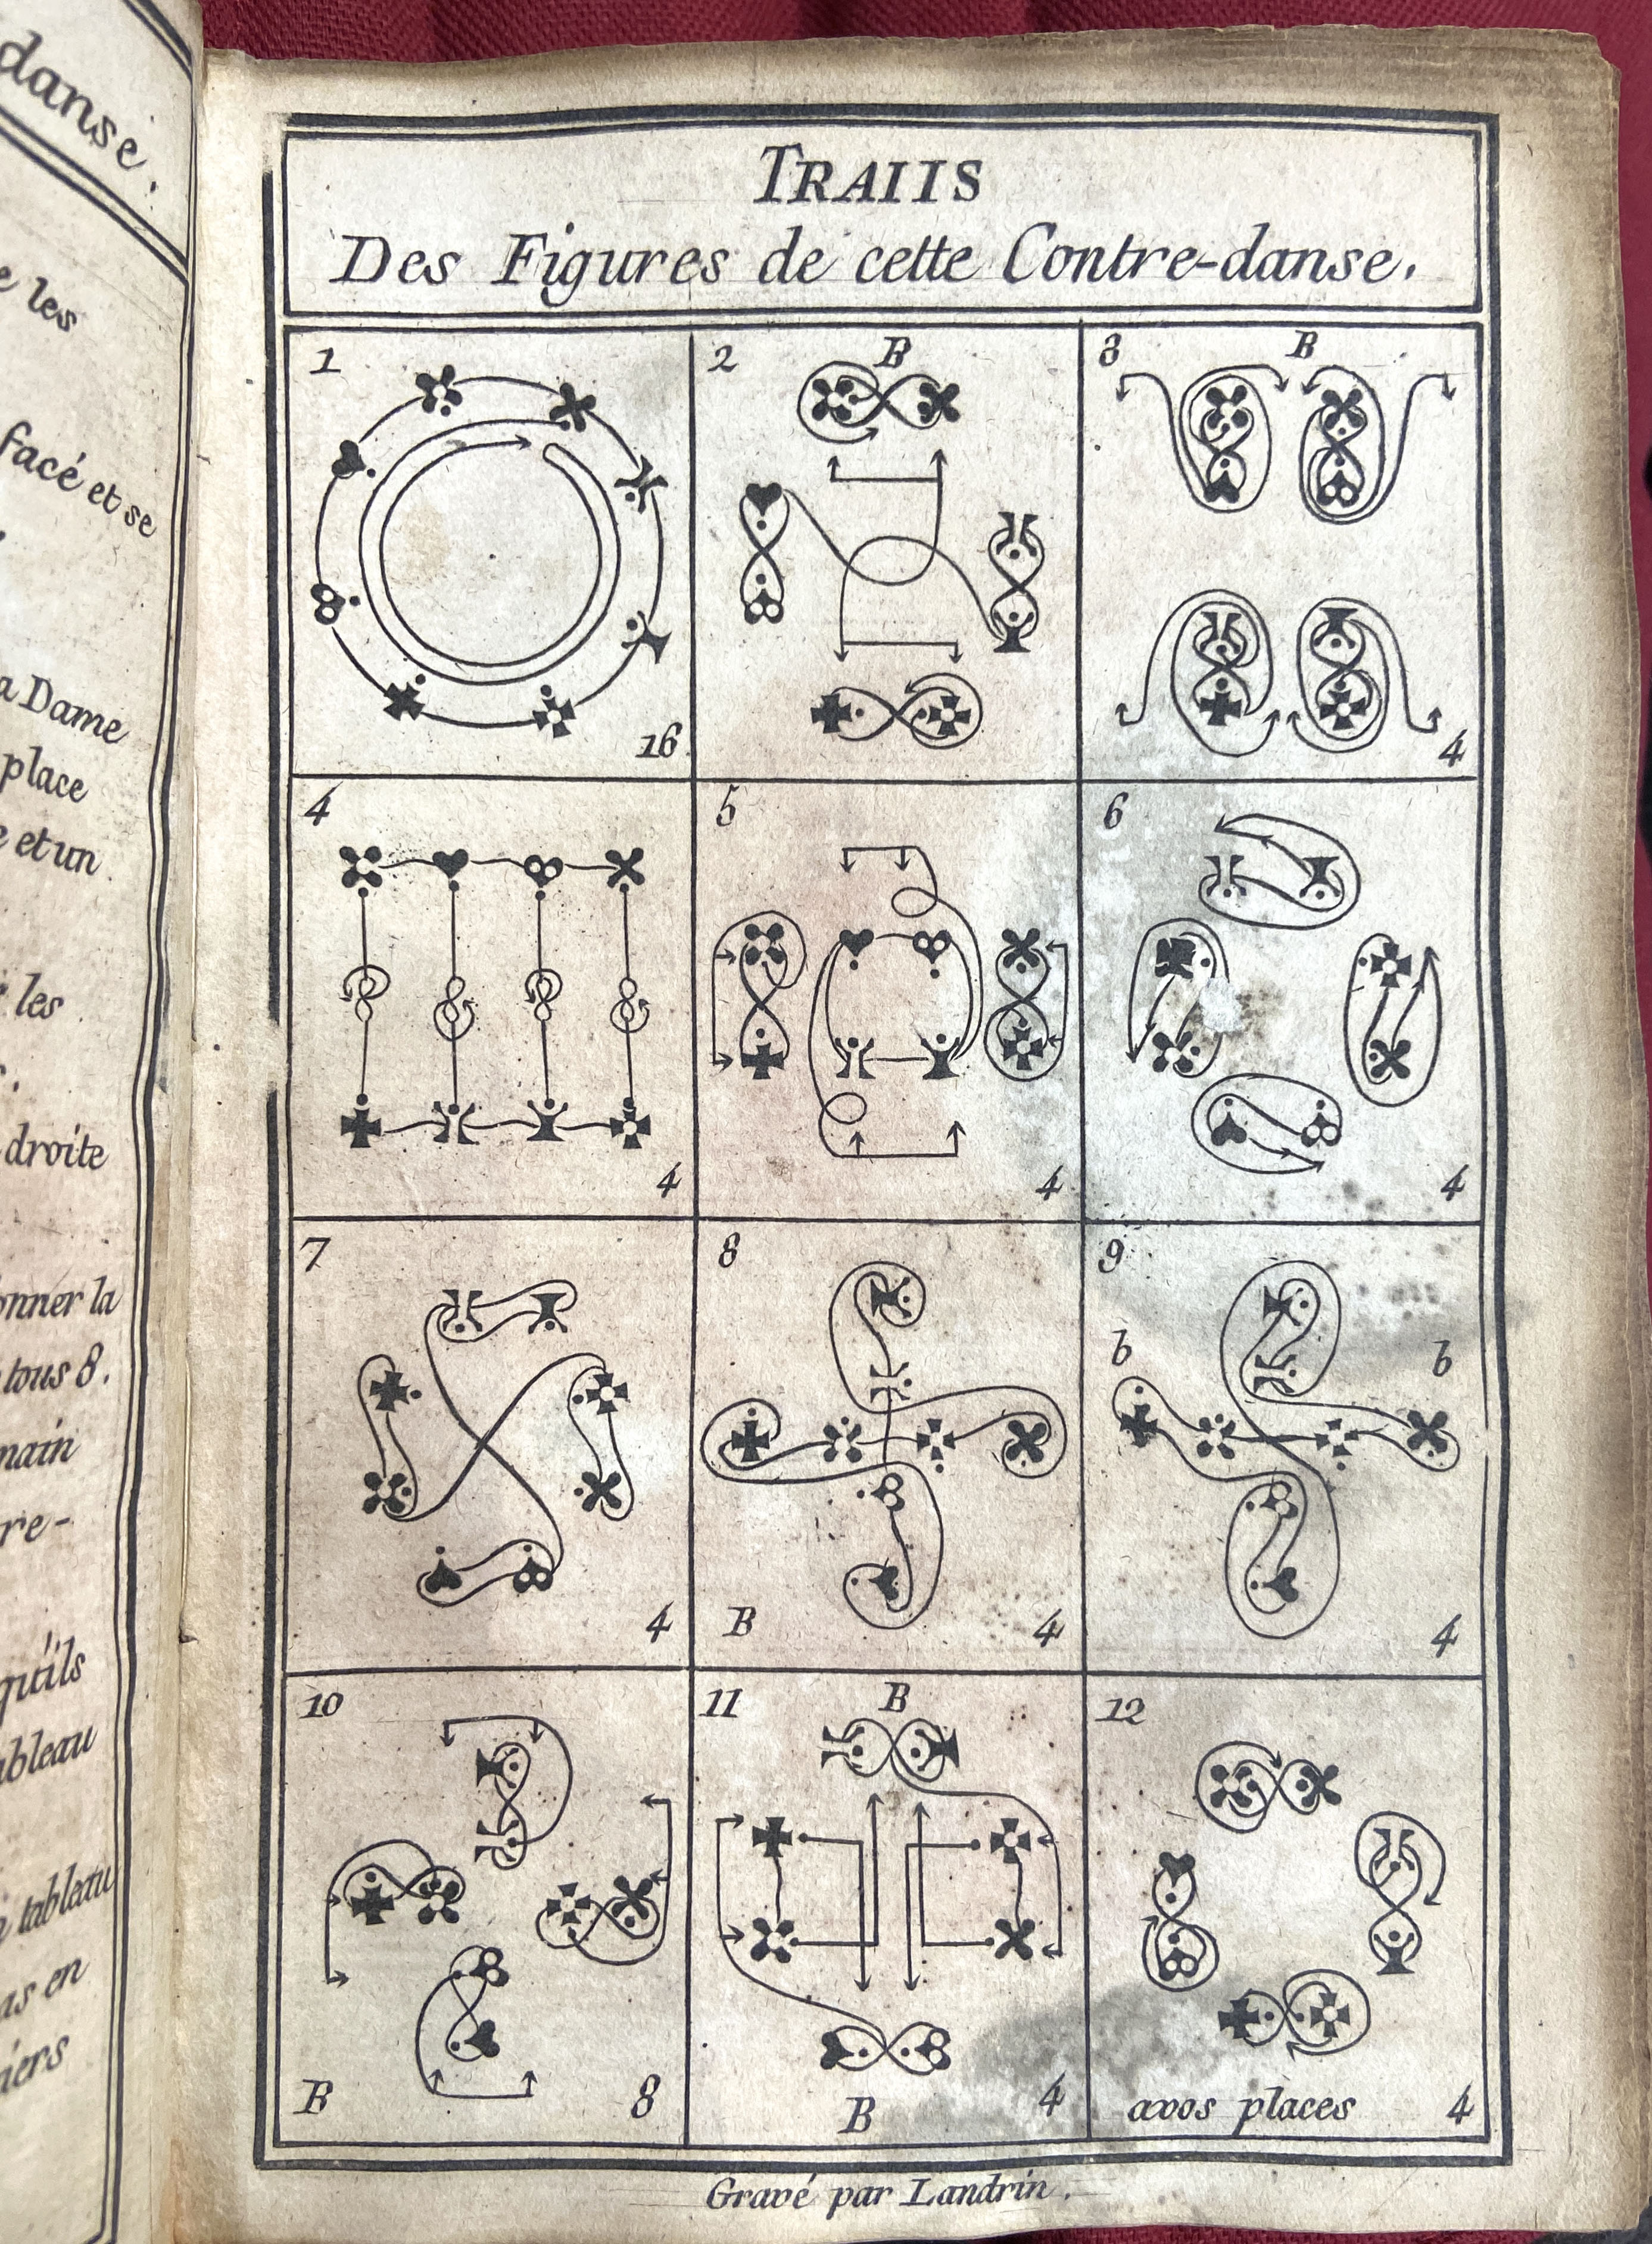 danse.
e les
facé et se
a Dame
place
e et un
les
droite
onner la
tous 8.
main
re-
qu'ils
ableau
a tableau
as en
iers
TRAIIS
Des Figures de cette Contre-danse.
1
16
2
B
3
B
4
4
4
5
4
6
4
7
4
8
B
4
9
b
b
4
10
B
8
11
B
B
4
12
avos places
4
Gravé par Landrin.